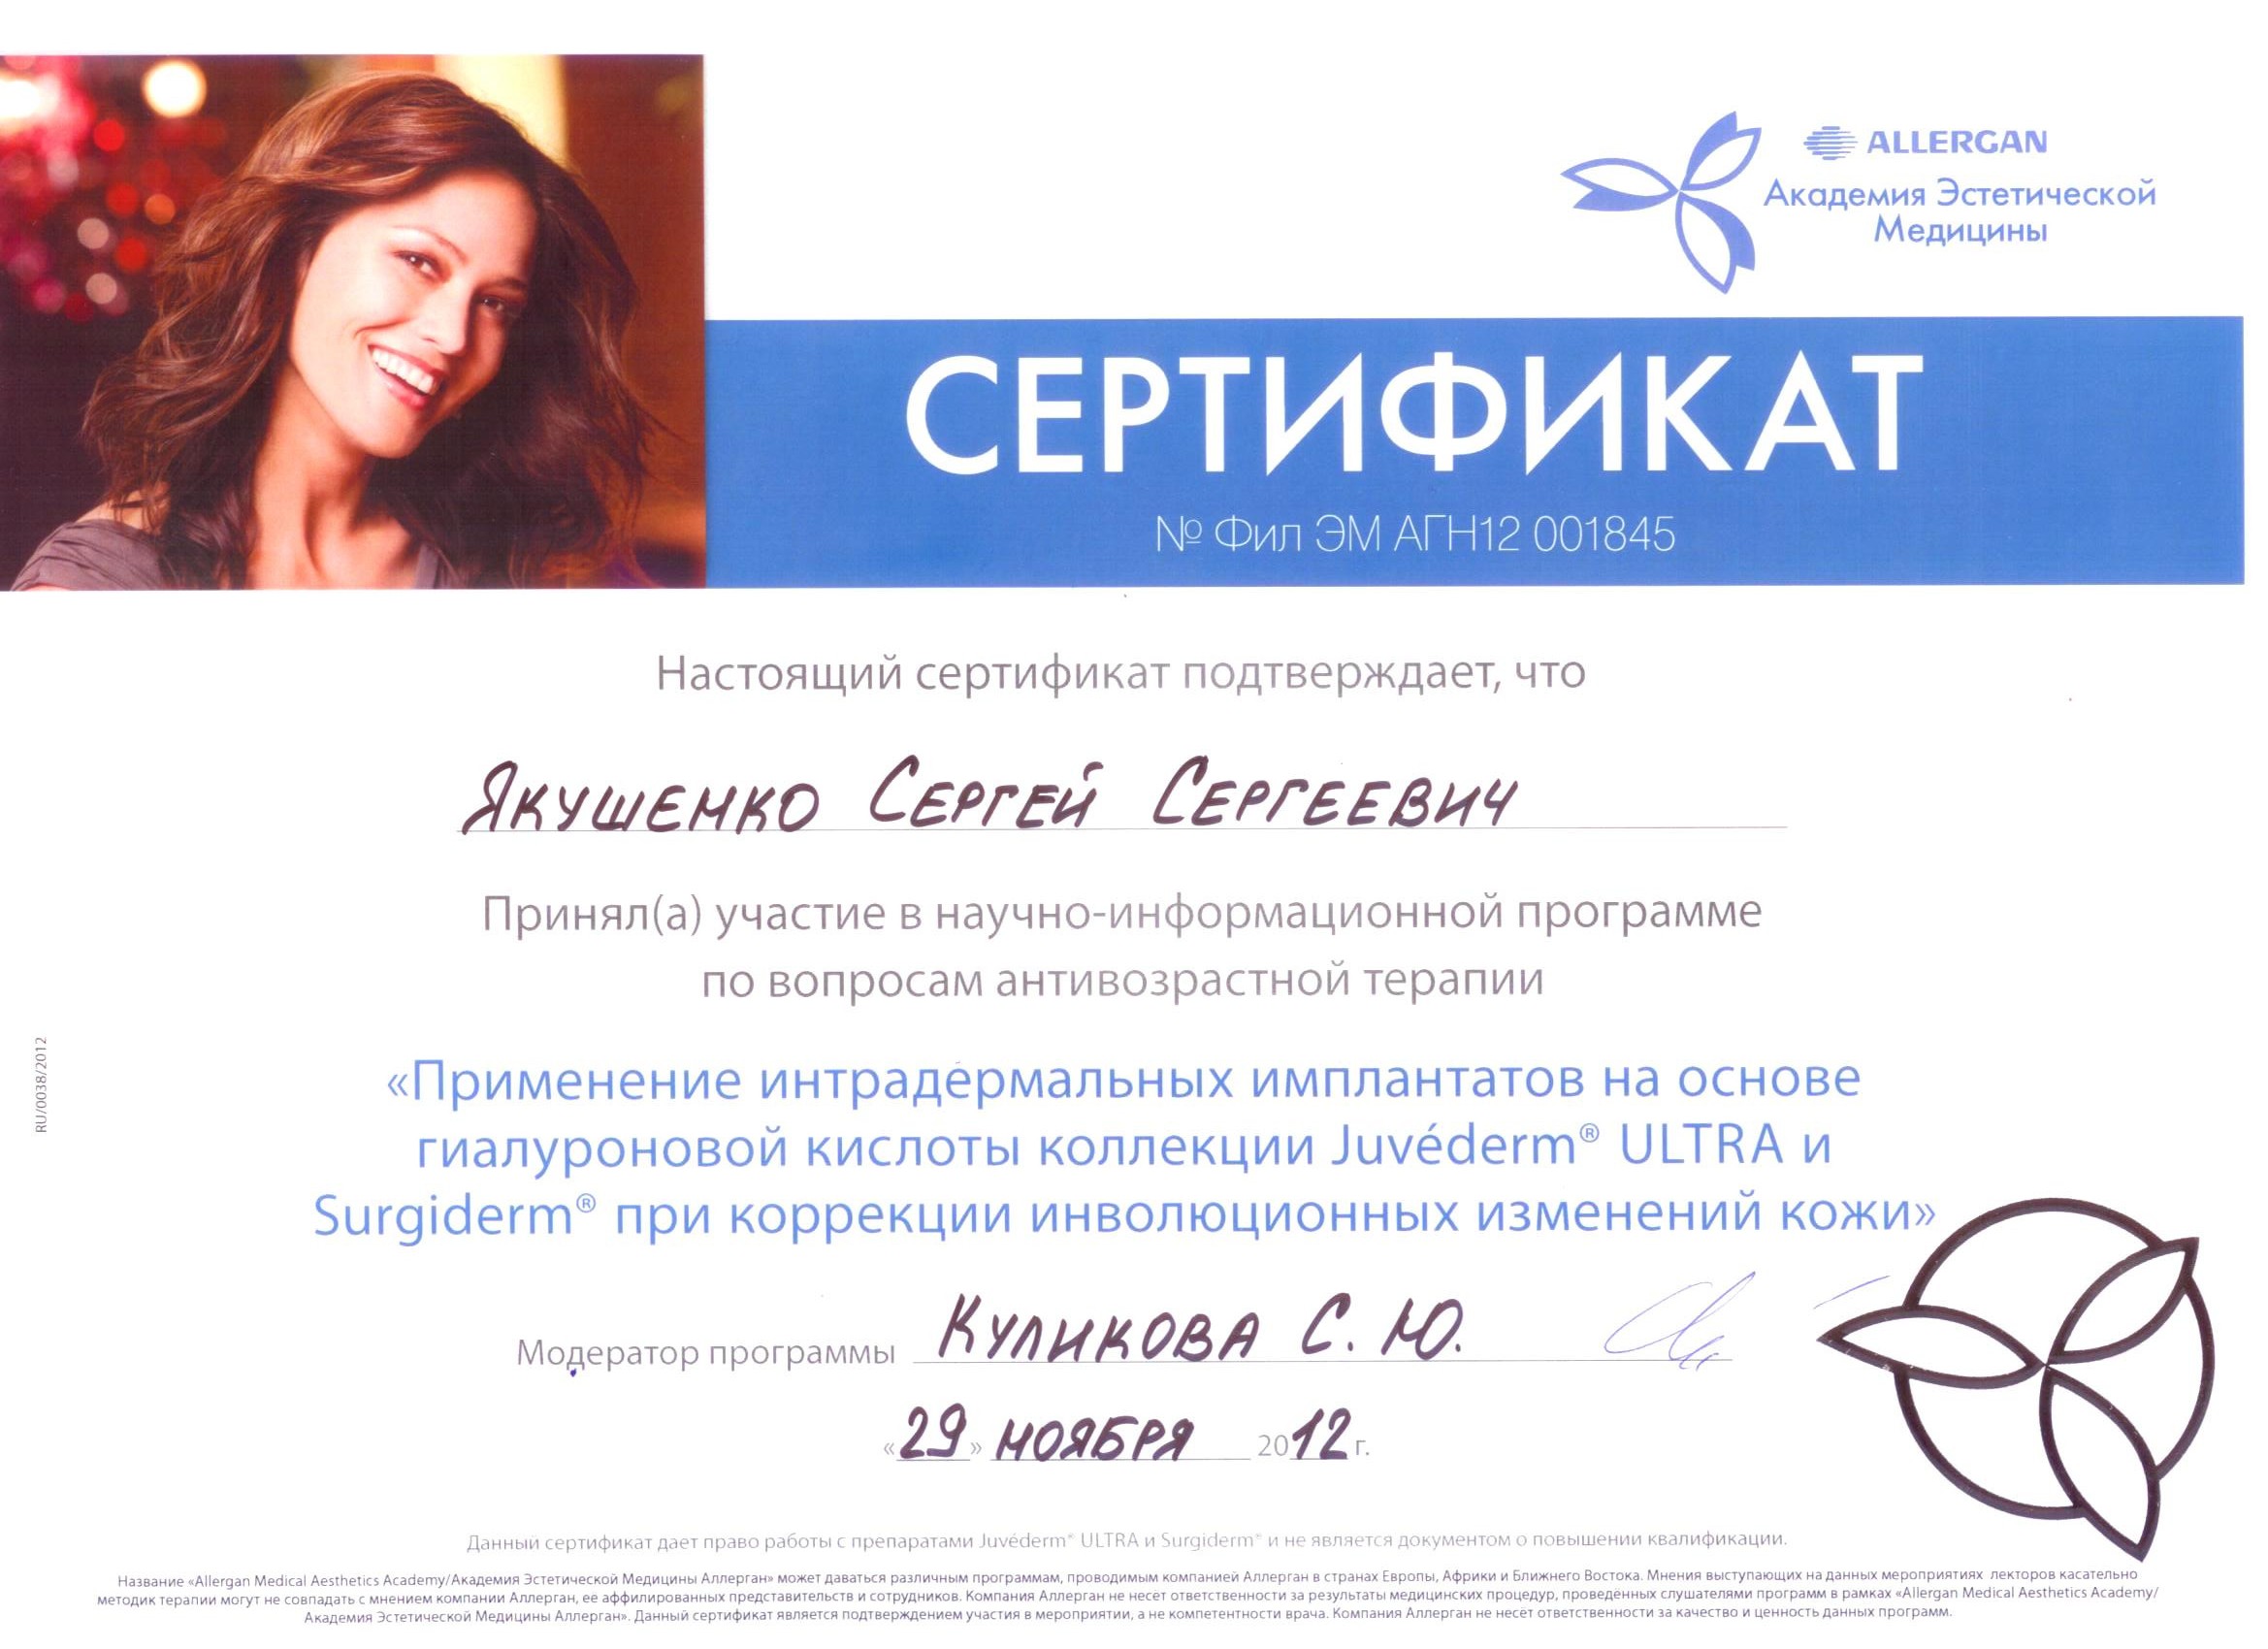 ALLERGAN
Академия Эстетической
Медицины
СЕРТИФИКАТ
№ Фил ЭМ АГН12 001845
Настоящий сертификат подтверждает, что
ЯКУШЕНКО СЕРГЕЙ СЕРГЕЕВИЧ
Принял(а) участие в научно-информационной программе
по вопросам антивозрастной терапии
«Применение интрадермальных имплантатов на основе
гиалуроновой кислоты коллекции Juvéderm® ULTRA и
Surgiderm® при коррекции инволюционных изменений кожи»
Модератор программы КУЛИКОВА С. Ю.
«29» НОЯБРЯ 2012 г.
RU/0038/2012
Данный сертификат дает право работы с препаратами Juvéderm® ULTRA и Surgiderm® и не является документом о повышении квалификации.
Название «Allergan Medical Aesthetics Academy/Академия Эстетической Медицины Аллерган» может даваться различным программам, проводимым компанией Аллерган в странах Европы, Африки и Ближнего Востока. Мнения выступающих на данных мероприятиях лекторов касательно
методик терапии могут не совпадать с мнением компании Аллерган, ее аффилированных представительств и сотрудников. Компания Аллерган не несёт ответственности за результаты медицинских процедур, проведённых слушателями программ в рамках «Allergan Medical Aesthetics Academy/
Академия Эстетической Медицины Аллерган». Данный сертификат является подтверждением участия в мероприятии, а не компетентности врача. Компания Аллерган не несёт ответственности за качество и ценность данных программ.